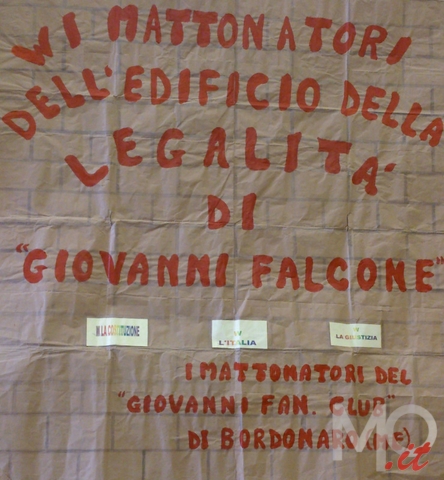 W I MATTONATORI
DELL'EDIFICIO DELLA
LEGALITA'
DI
"GIOVANNI FALCONE"
W LA COSTITUZIONE
W
L'ITALIA
W
LA GIUSTIZIA
I MATTONATORI DEL
"GIOVANNI FAN. CLUB"
DI BORDONARO (ME)
MO
.it